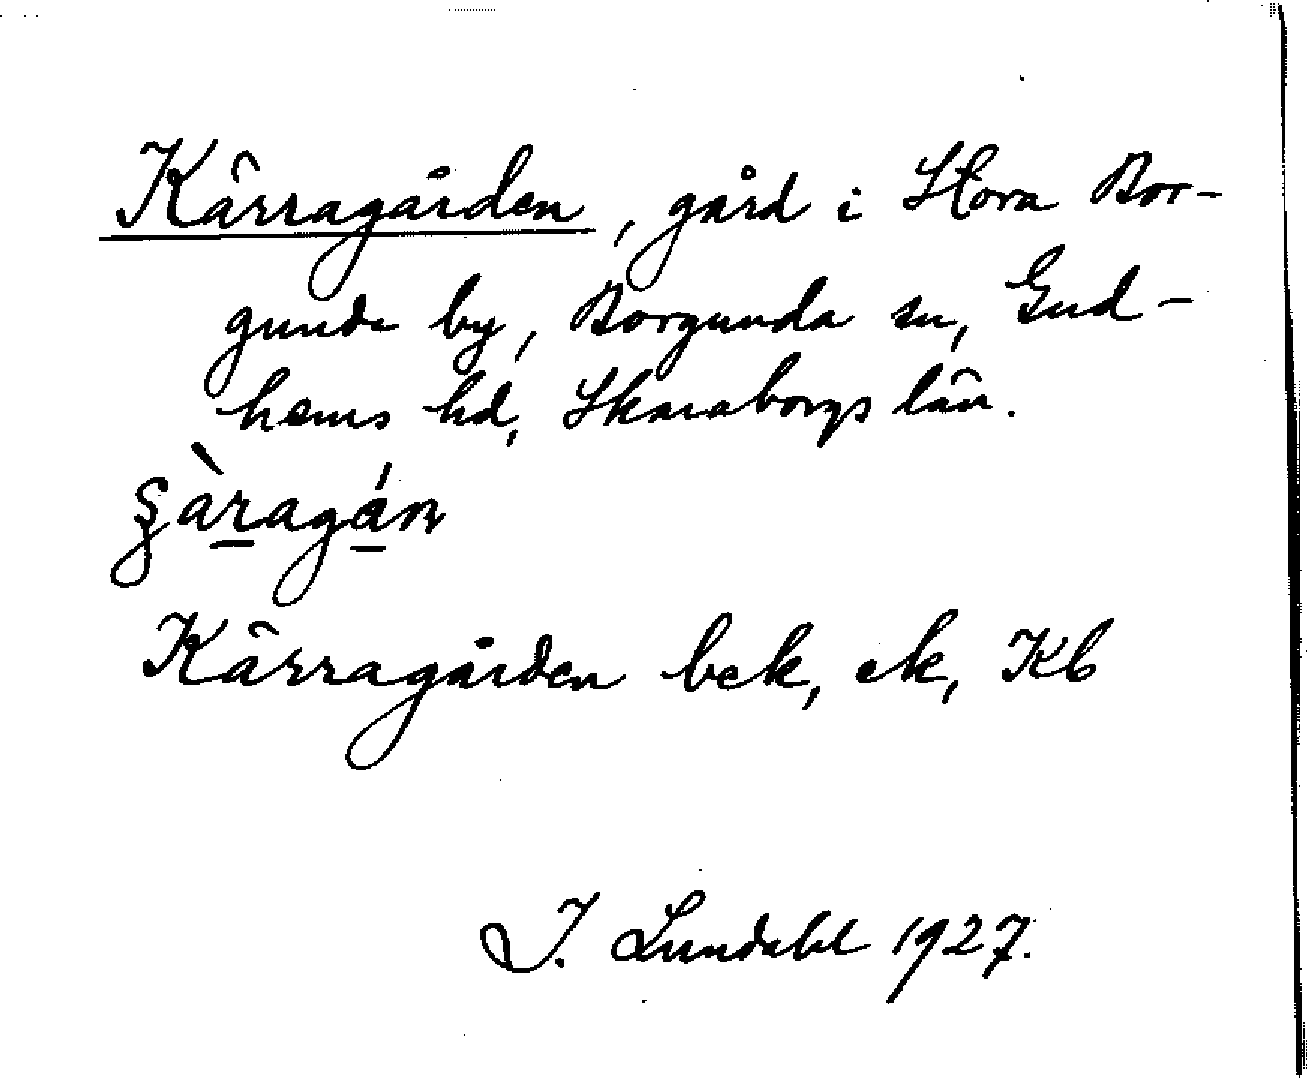 Kärragården, gård i Stora Bor-
gunda by, Borgunda sn, Gud-
hems hd, Skaraborgs län.
Kärragården bek, ek, Kb
I. Lundahl 1927.